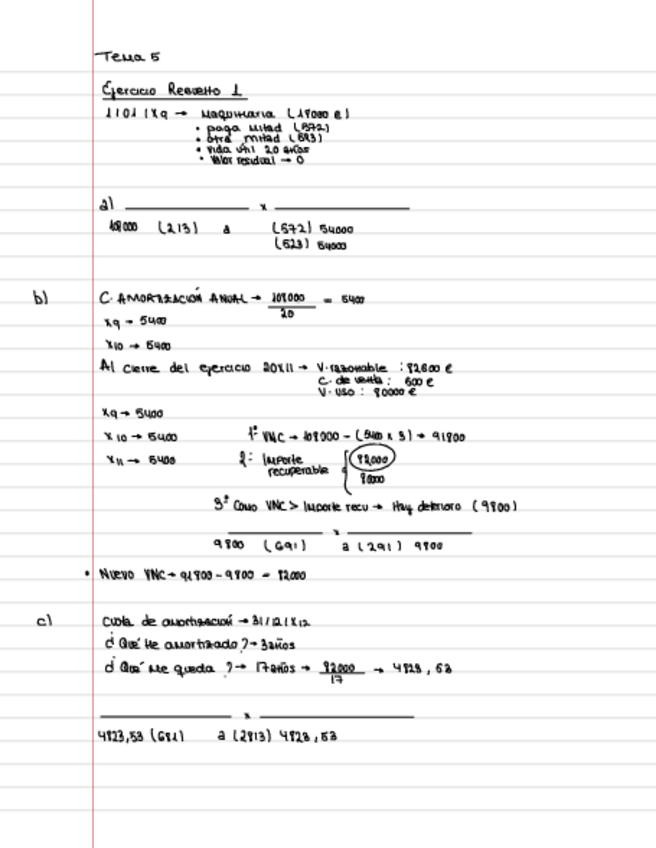 Tema 5
Ejercicio Resuelto 1
1101 1X9 → Maquinaria (18000 €)
• paga mitad (572)
• otra mitad (523)
• vida útil 20 años
• Valor residual → 0
a) x
108000 (213) a (572) 54000
(523) 54000
b) C. AMORTIZACIÓN ANUAL → 108000 / 20 = 5400
X9 → 5400
X10 → 5400
Al cierre del ejercicio 20X11 → V. razonable : 82600 €
C. de venta : 600 €
V. uso : 80000 €
X9 → 5400
X10 → 5400 1º VNC → 108000 - (5400 x 3) → 91800
X11 → 5400 2º Importe recuperable { 82000
80000
3º Como VNC > Importe recu → Hay deterioro (9800)
x
9800 (691) a (291) 9800
• Nuevo VNC → 91800 - 9800 = 82000
c) Cuota de amortización → 31/12/X12
¿Qué He amortizado? → 3 años
¿Qué Me queda? → 17 años → 82000 / 17 → 4823,53
x
4823,53 (681) a (2813) 4823,53